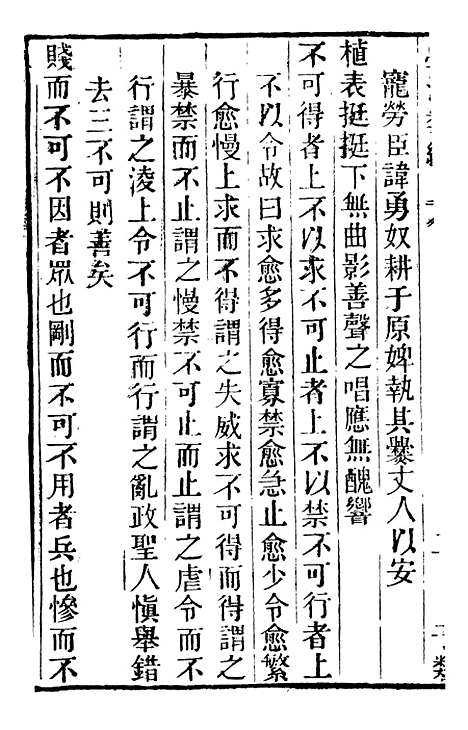 寵勞臣諱勇奴耕于原婢執其爨丈人以安
植表挺挺下無曲影善聲之唱應無醜響
不可得者上不以求不可止者上不以禁不可行者上
不以令故曰求愈多得愈寡禁愈急止愈少令愈繁
行愈慢上求而不得謂之失威求不可得而得謂之
暴禁而不止謂之慢禁不可止而止謂之虐令而不
行謂之淩上令不可行而行謂之亂政聖人愼舉錯
去三不可則善矣
賤而不可不因者眾也剛而不可不用者兵也慘而不